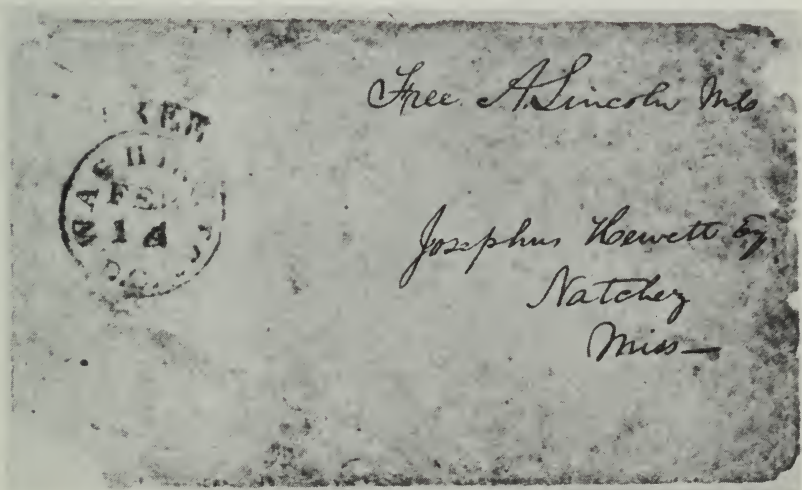 FREE
WASHINGTON
FEB
14
D.C.
Free. A. Lincoln M.C.
Josephus Hewett Esq.
Natchez
Miss—